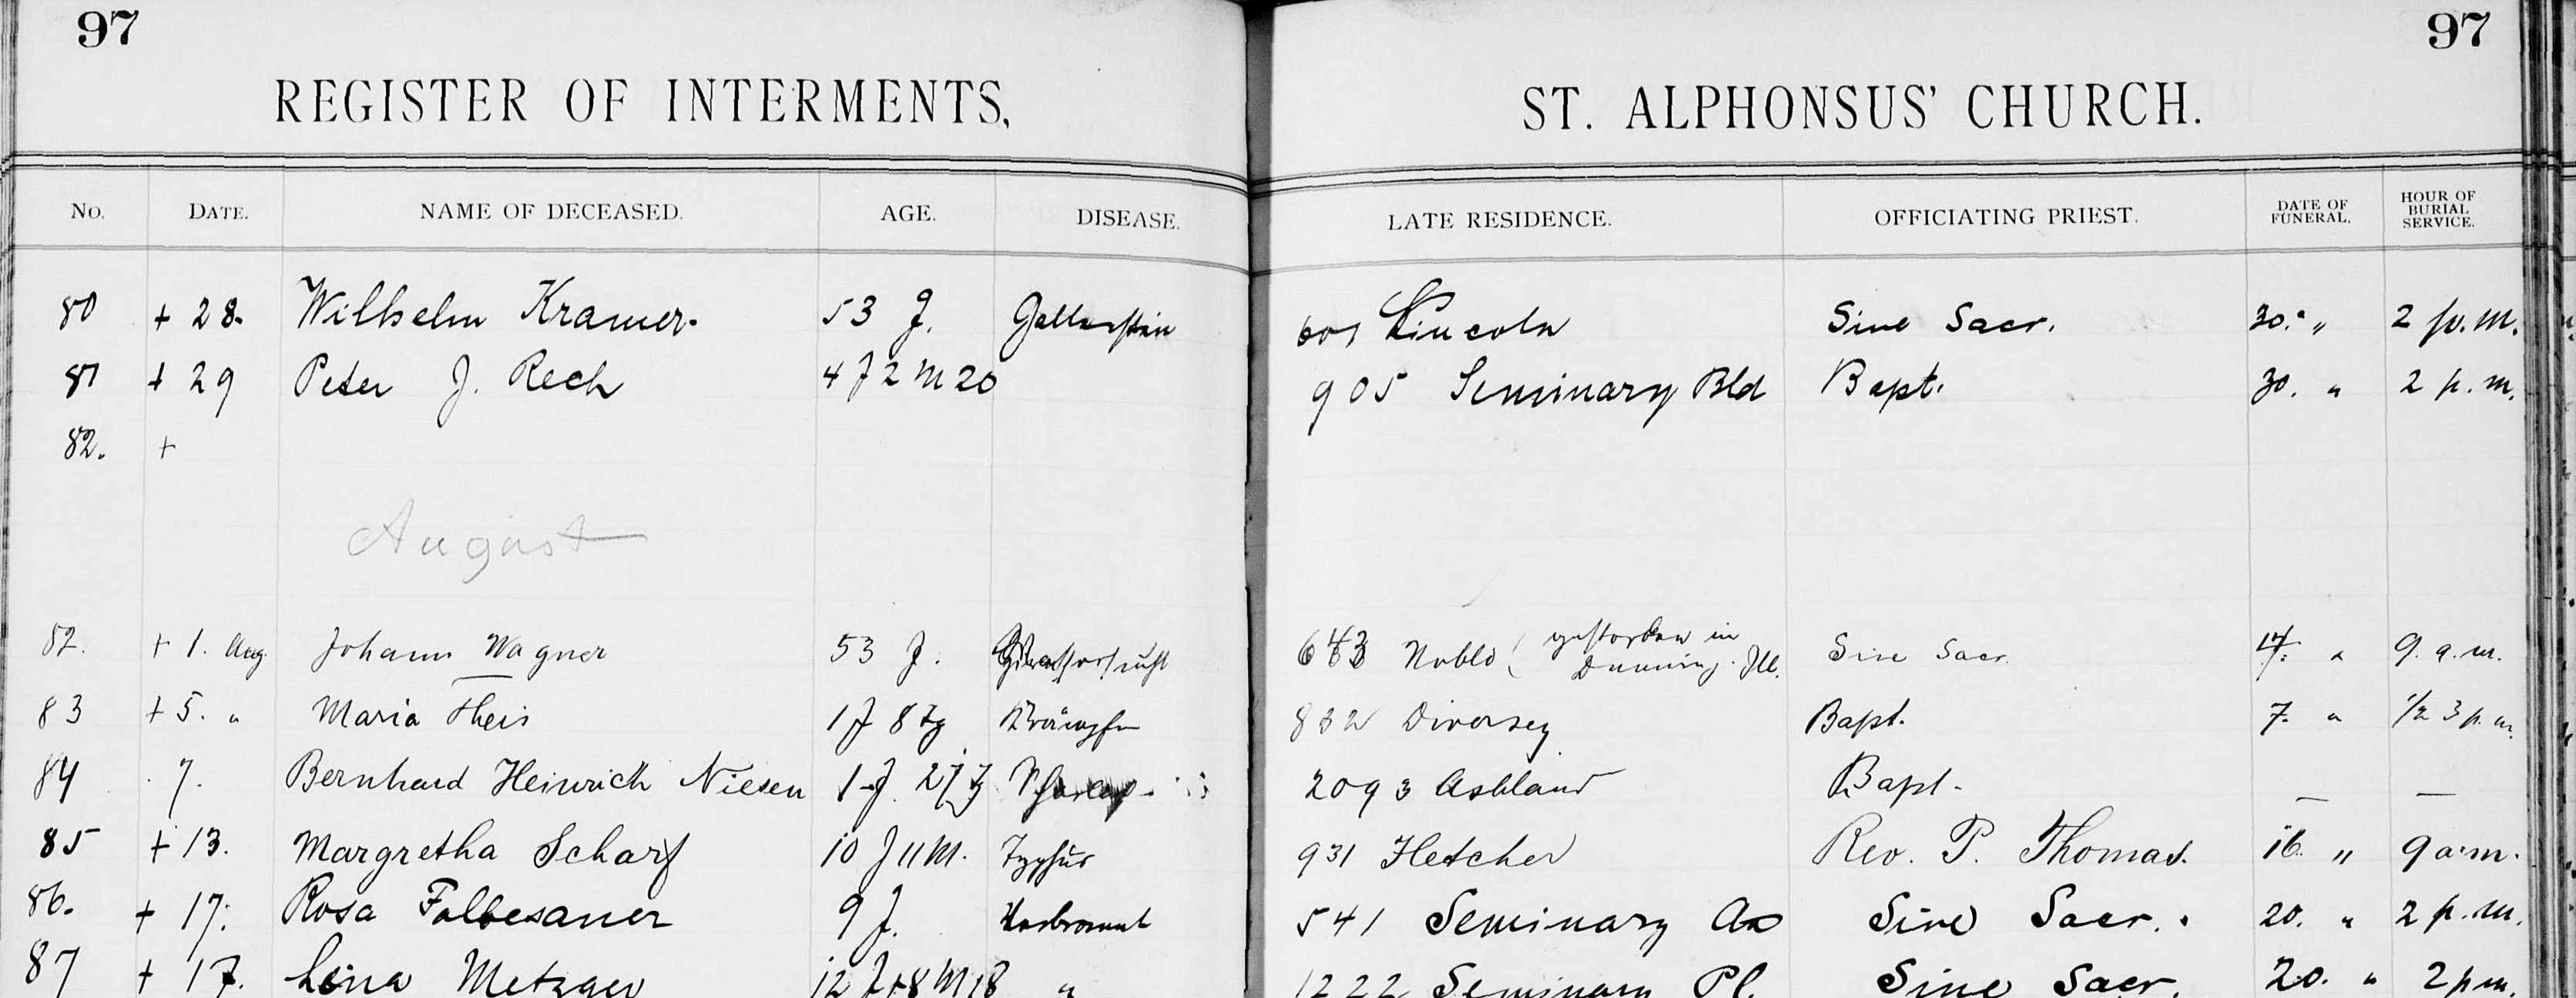 97 97
REGISTER OF INTERMENTS, ST. ALPHONSUS' CHURCH.
No. DATE. NAME OF DECEASED. AGE. DISEASE. LATE RESIDENCE. OFFICIATING PRIEST. DATE OF FUNERAL. HOUR OF BURIAL SERVICE.
80 + 28. Wilhelm Kramer. 53 J. Gallenstein 601 Lincoln Sine Sacr. 30. " 2 p.m.
81 + 29 Peter J. Rech 4 J 2 M 20 905 Seminary Bld Bapt. 30. " 2 p.m.
82. +
August
82. + 1. Aug. Johann Wagner 53 J. 643 Noble ( gestorben in Dunning. Ill. Sine Sacr. " 9. a.m.
83 + 5. " Maria Theis 1 J 8 Tg Krämpfe 832 Diversey Bapt. 7. " 1/2 3 p.m.
84 7. Bernhard Heinrich Niesen 1 J. 27 Tg 2093 Ashland Bapt. — —
85 + 13. Margretha Scharf 10 J 11 M. Typhus 931 Fletcher Rev. P. Thomas. 16. " 9 a.m.
86. + 17. Rosa Falbesaner 9 J. Verbrannt 541 Seminary Av Sine Sacr. 20. " 2 p.m.
87 + 17. Lena Metzger 12 J + 8 M 18 " 1222 Seminary Pl. Sine Sacr. 20. " 2 p.m.